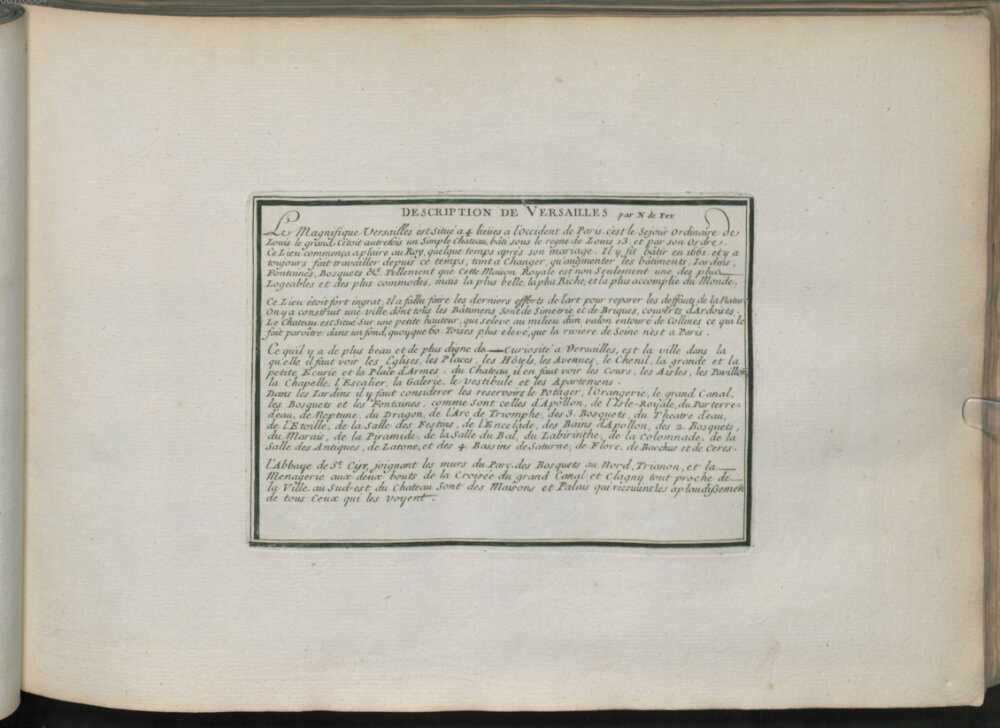 DESCRIPTION DE VERSAILLES par N de Fer
Le Magnifique Versailles est Situé a 4 lieües a l'occident de Paris, c'est le Sejour Ordinaire de
Louis le grand. C'étoit autrefois un Simple Chateau, bâti sous le regne de Louis 13. et par son Ordre.
Ce Lieu commença a plaire au Roy, quelque temps après son mariage. Il y fit bâtir en 1661. et y a
toujours fait travailler depuis ce temps, tant a Changer, qu'augmenter les bâtiments, Iardins,
Fontaines, Bosquets &c. Tellement que Cette Maison Royale est non Seulement une des plus
Logeables et des plus commodes, mais la plus belle, la plus Riche, et la plus accomplie du Monde.
Ce Lieu étoit fort ingrat, Il a fallu faire les derniers efforts de l'art pour reparer les deffauts de la Nature
On y a construit une ville dont tous les Bâtimens sont de Simetrie et de Briques, couverts d'Ardoises.
Le Chateau est Situé Sur une petite hauteur, qui s'eleve au milieu d'un valon entouré de Collines ce qui le
fait paroître dans un fond, quoyque 60. Toises plus elevé, que la riviere de Seine n'est a Paris.
Ce qu'il y a de plus beau et de plus digne de Curiosité a Versailles, est la ville dans la
qu'elle il faut voir les Eglises, les Places, les Hôtels, les Avenues, le Chenil, la grande et la
petite Ecurie et la Place d'Armes. du Chateau, il en faut voir les Cours, les Aisles, les Pavillons
la Chapelle, l'Escalier, la Galerie, le Vestibule et les Apartemens.
Dans les Iardins il y faut considerer les reservoirs le Potager, l'Orangerie, le grand Canal,
les Bosquets et les Fontaines, comme sont celles d'Apollon, de l'Isle-Royale, du Parterre-
d'eau, de Neptune, du Dragon, de l'Arc de Triomphe, des 3. Bosquets, du Theatre d'eau,
de l'Etoille, de la Salle des Festins, de l'Encelade, des Bains d'Apollon, des 2. Bosquets,
du Marais, de la Piramide, de la Salle du Bal, du Labirinthe, de la Colomnade, de la
Salle des Antiques, de Latone, et des 4. Bassins de Saturne, de Flore, de Bacchus et de Ceres.
l'Abbaye de St. Cyr, joignant les murs du Parc, des Bosquets au Nord, Trianon, et la
Menagerie aux deux bouts de la Croisée du grand Canal, et Clagny tout proche de
la Ville, au Sud-est du Chateau Sont des Maisons et Palais qui reçoivent les aplaudissemens
de tous Ceux qui les voyent.